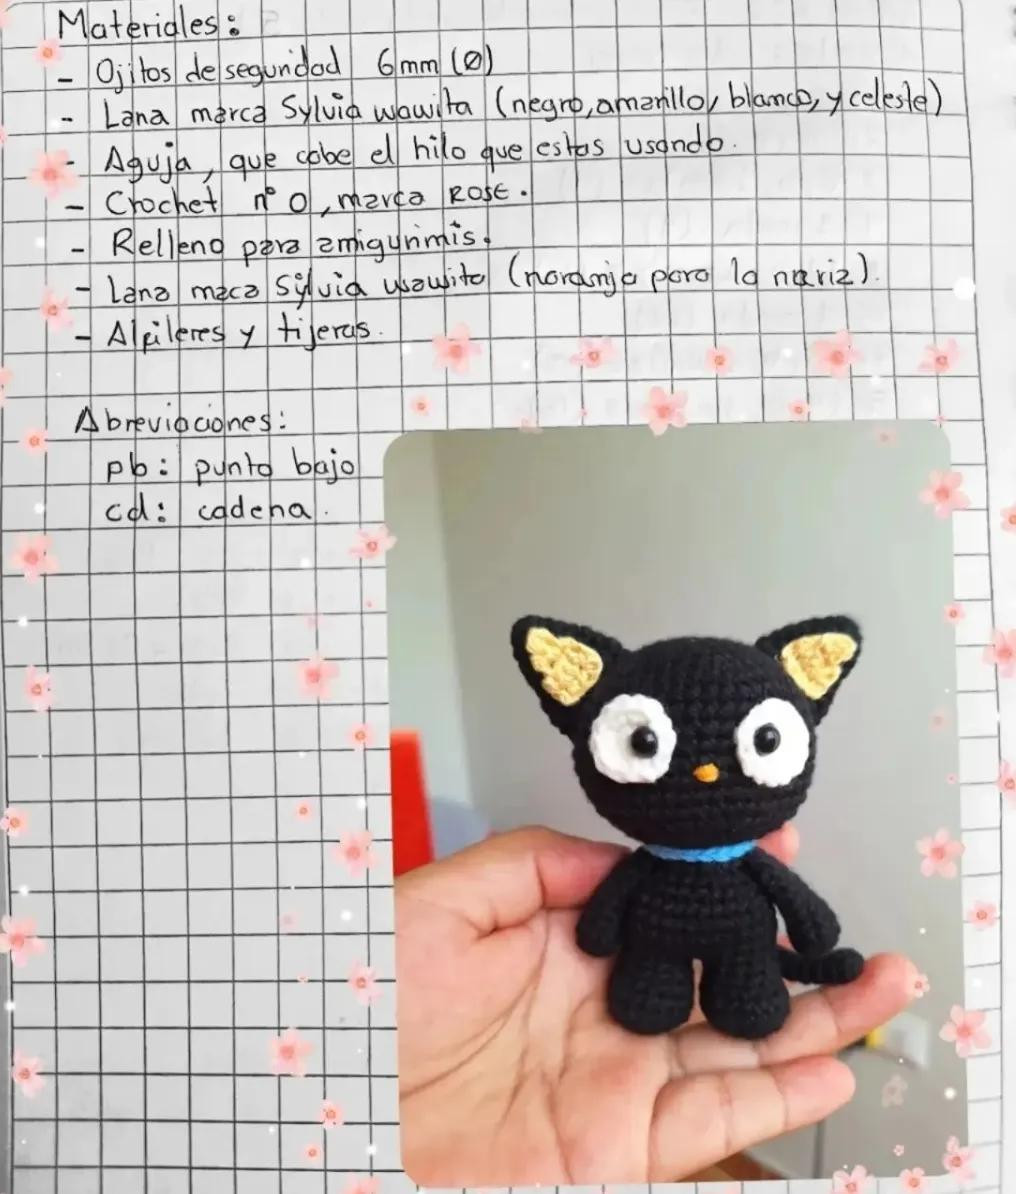 Materiales:
- Ojitos de seguridad 6mm (Ø)
- Lana marca Sylvia wawita (negro, amarillo, blanco, y celeste)
- Aguja, que cabe el hilo que estas usando.
- Crochet nº 0, marca ROSE.
- Relleno para amigurimis.
- Lana maca Sylvia wawita (naranja para la nariz).
- Alfileres y tijeras.
Abreviaciones:
pb: punto bajo
cd: cadena.